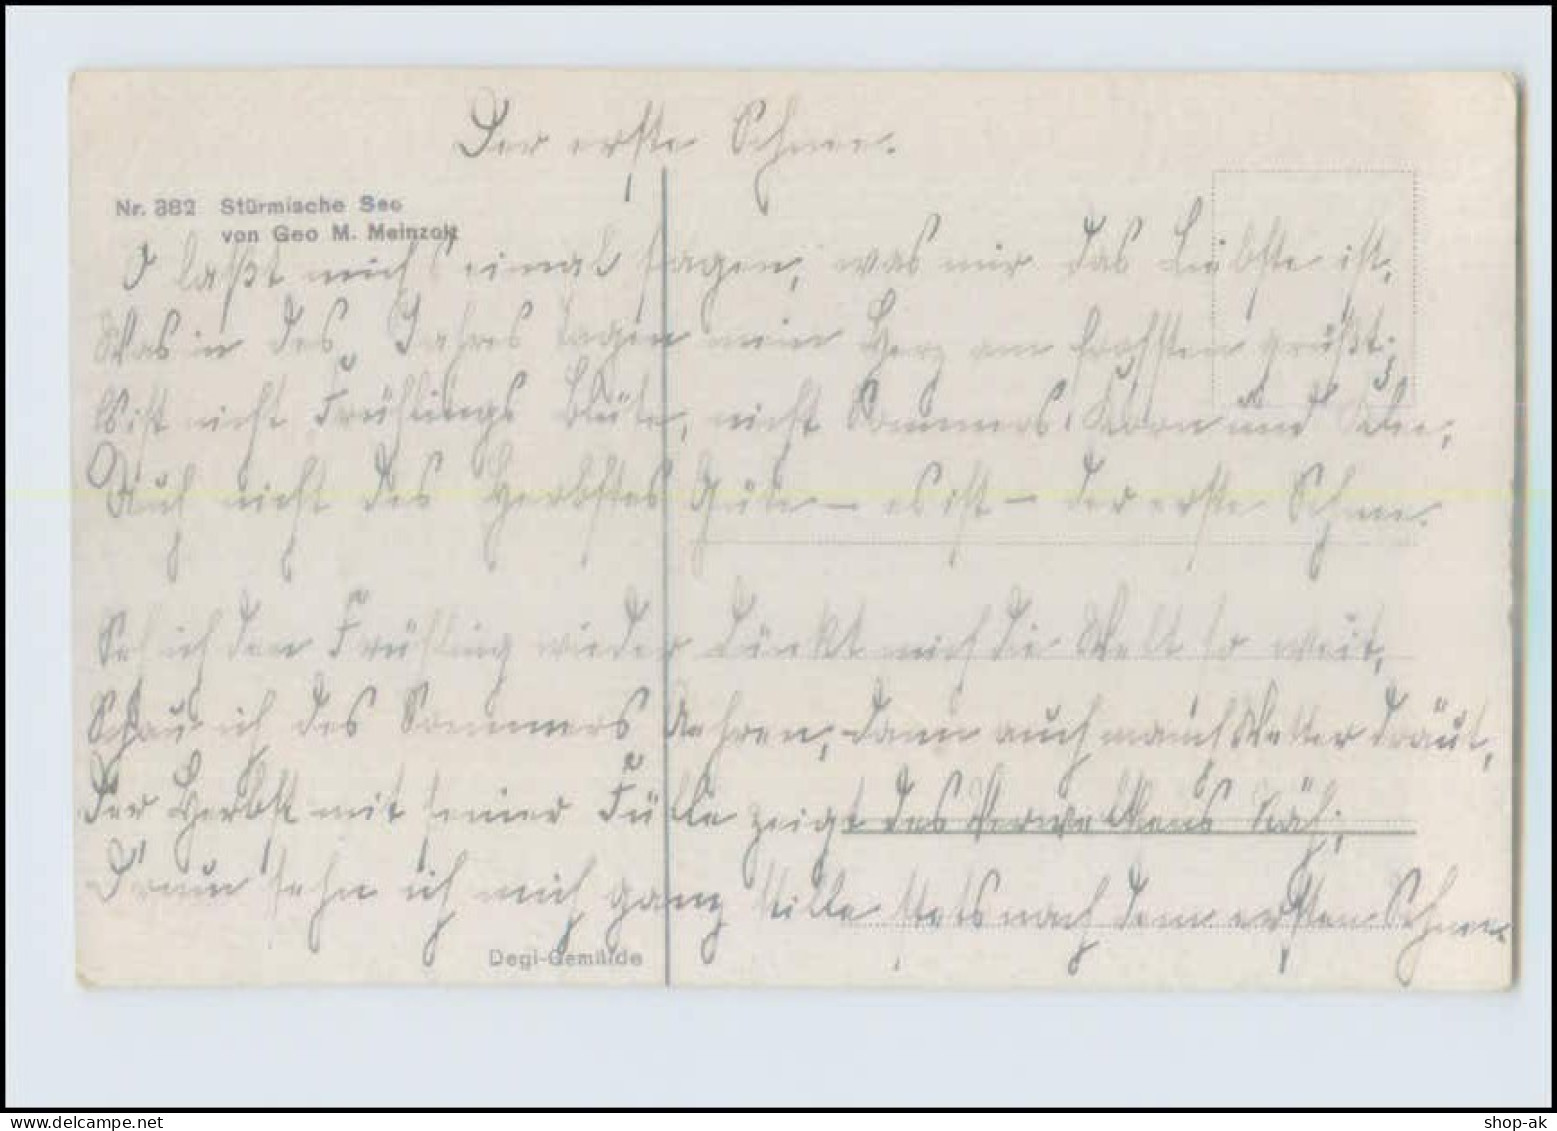 Der erste Schnee.
Nr. 382 Stürmische See
von Geo M. Meinzolt
O laßt mich einmal sagen, was mir das Liebste ist,
Was in des Jahres Tagen mein Herz am frohsten grüßt;
Es ist nicht Frühlings Blüte, nicht Sommers Korn und Klee,
Auch nicht des Herbstes Güte – es ist – der erste Schnee.
Seh ich den Frühling wieder dünkt mich die Welt so weit,
Schau ich des Sommers Aehren, dann auch manch Wetter dräut,
Der Herbst mit seiner Fülle zeigt des Verwelkens Näh;
Drum sehn ich mich ganz stille stets nach dem ersten Schnee.
Degi-Gemälde
shop-ak